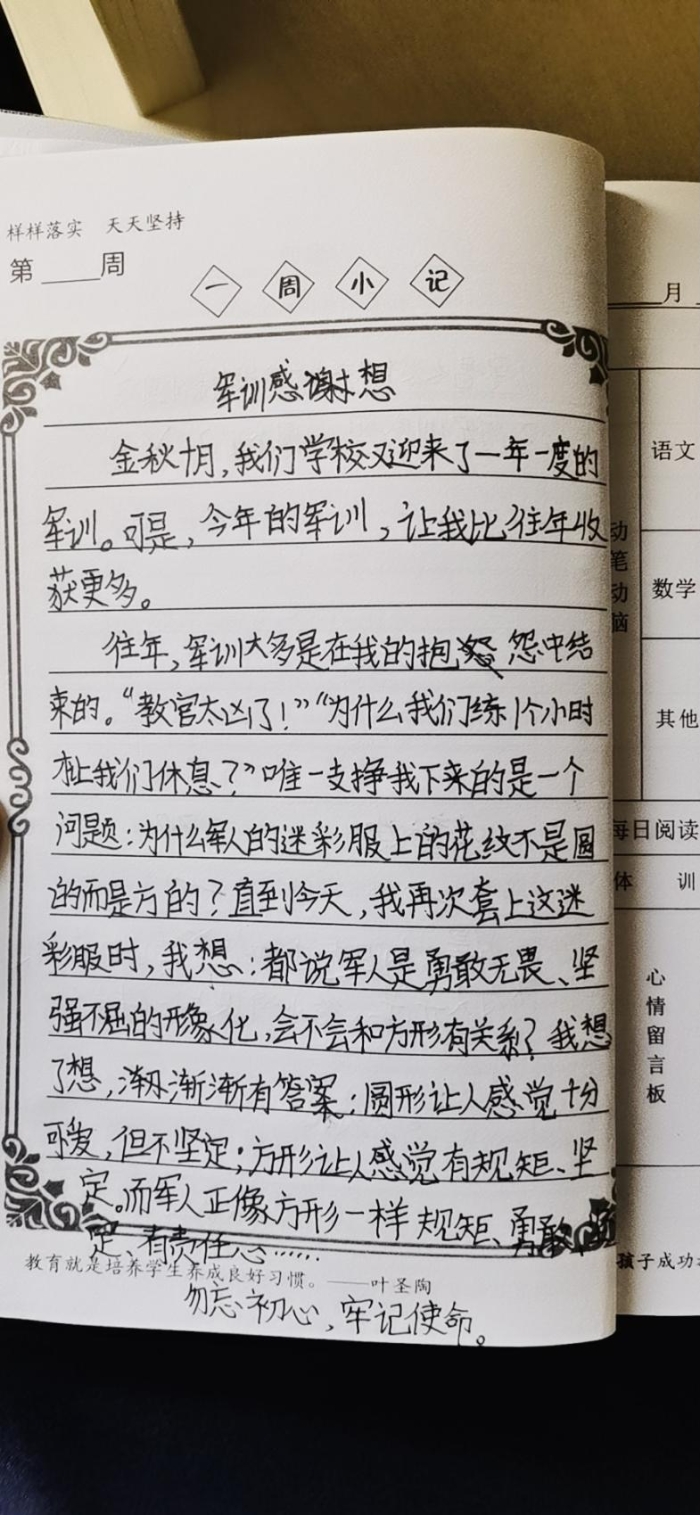 样样落实 天天坚持
第____周
一周小记
军训感谢想
金秋十月,我们学校又迎来了一年一度的
军训。可是,今年的军训,让我比往年收
获更多。
往年,军训大多是在我的抱怨中结
束的。“教官太凶了!”“为什么我们练1个小时
才让我们休息?”唯一支撑我下来的是一个
问题:为什么军人的迷彩服上的花纹不是圆
的而是方的?直到今天,我再次套上这迷
彩服时,我想:都说军人是勇敢无畏、坚
强不屈的形象化,会不会和方形有关系?我想
了想,渐渐有答案:圆形让人感觉十分
可爱,但不坚定;方形让人感觉有规矩、坚
定。而军人正像方形一样规矩、勇敢、坚
定、有责任心……
教育就是培养学生养成良好习惯。——叶圣陶
勿忘初心,牢记使命。
月
语文
动笔动脑
数学
其他
每日阅读
体 训
心情留言板
孩子成功